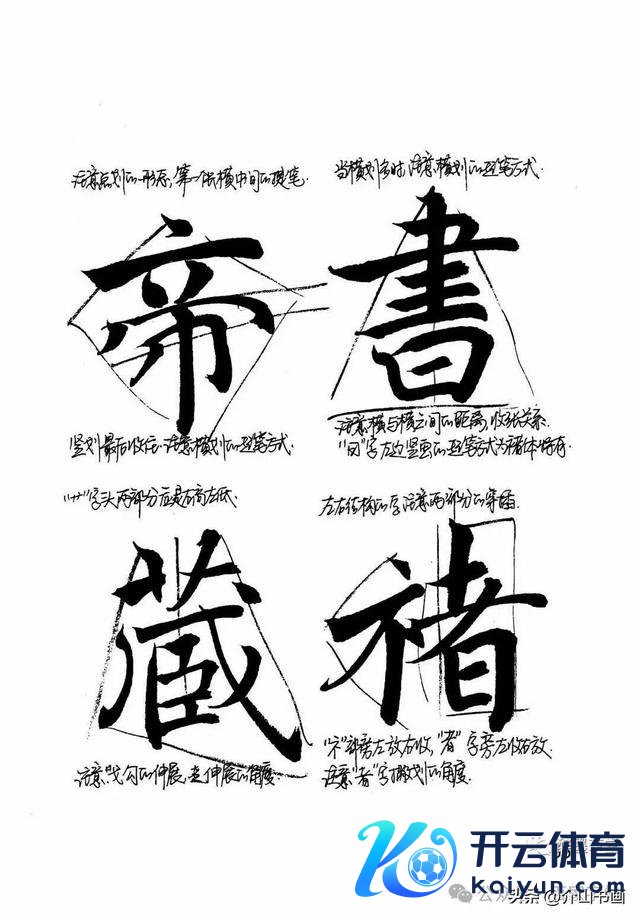 注意点划的形态,第一长横中间的提笔.
当横划多时,注意横划的运笔方式.
帝
書
竖划最后收住.注意横划的运笔方式.
注意横与横之间的距离,收张关系.
"曰"字左边竖画的运笔方式为褚体特有.
"艹"字头两部分应是右高左低.
左右结构的字注意两部分的穿插.
藏
褚
注意戈勾的伸展,走伸展的角度.
"衤"部旁左放右收,"者"字旁左收右放.
注意"者"字撇划的角度.
开云体育
kaiyun.com
头条@介山书画